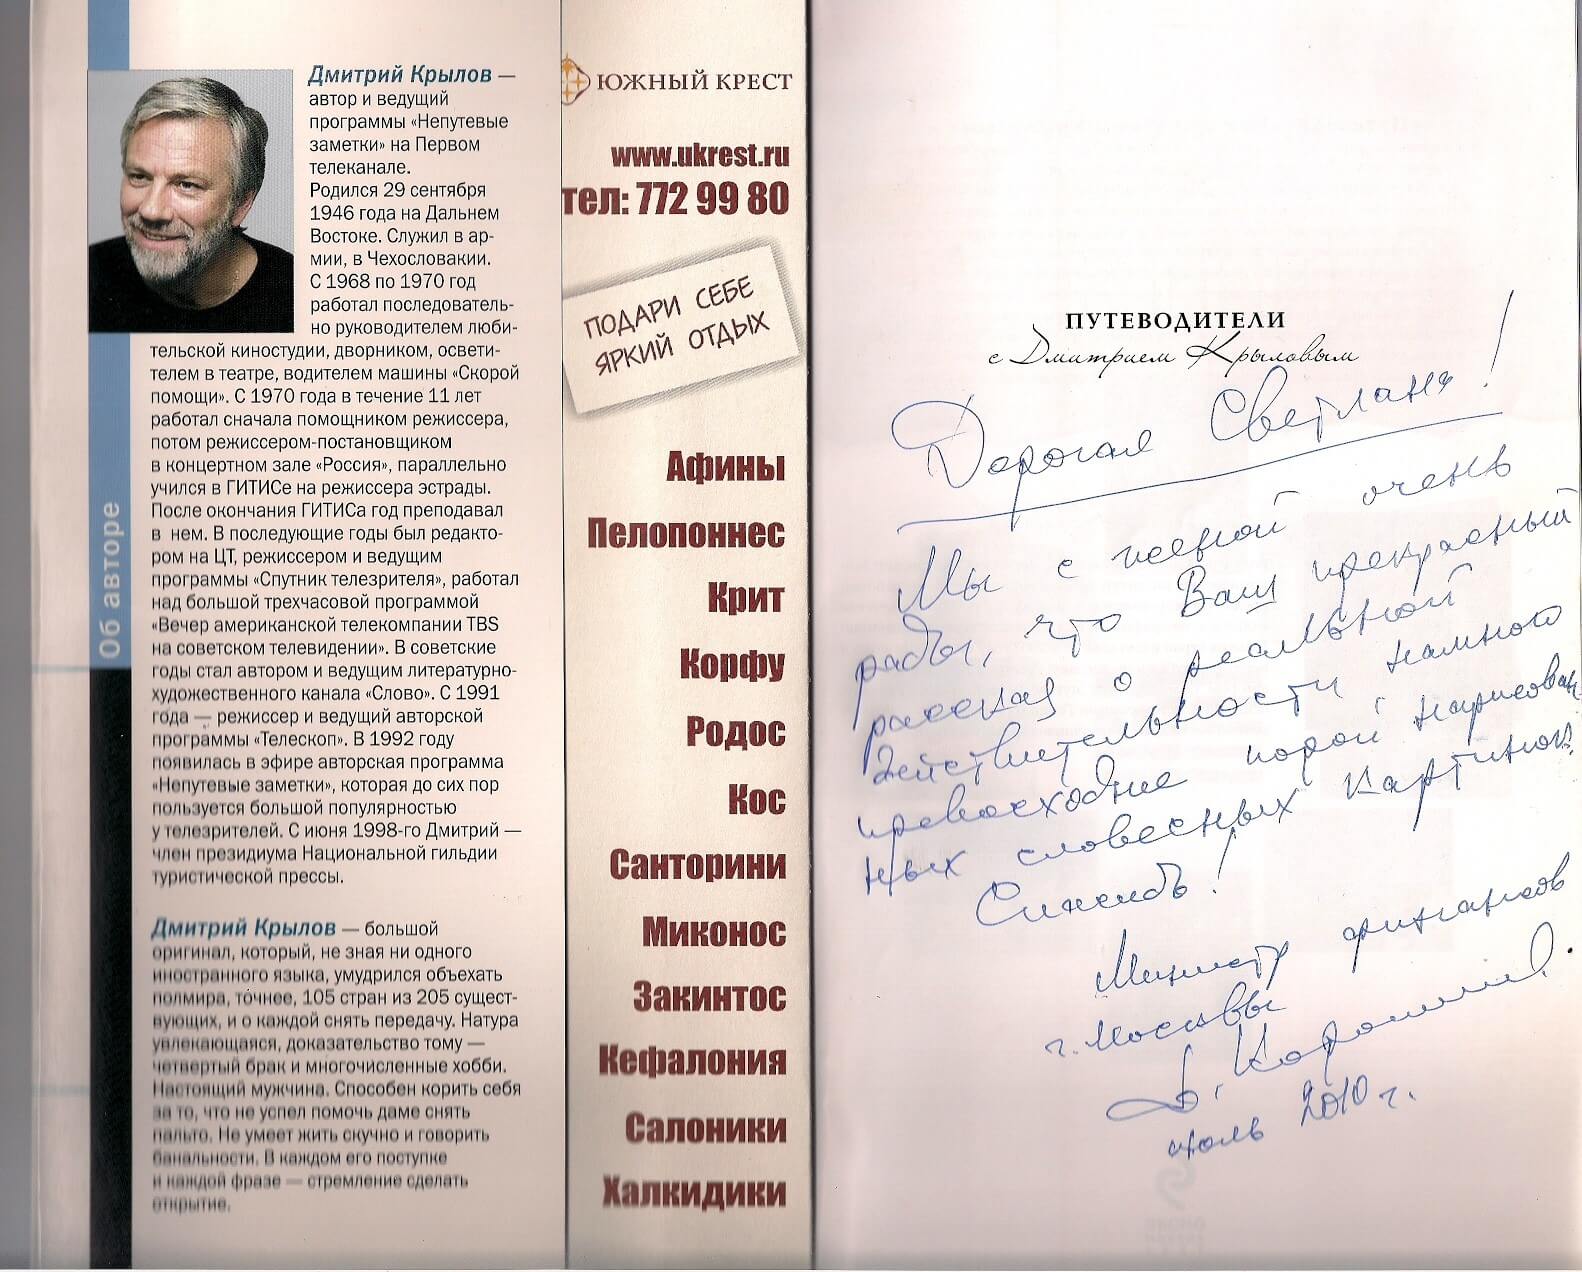 Дмитрий Крылов —
автор и ведущий
программы «Непутевые
заметки» на Первом
телеканале.
Родился 29 сентября
1946 года на Дальнем
Востоке. Служил в ар-
мии, в Чехословакии.
С 1968 по 1970 год
работал последователь-
но руководителем люби-
тельской киностудии, дворником, освети-
телем в театре, водителем машины «Скорой
помощи». С 1970 года в течение 11 лет
работал сначала помощником режиссера,
потом режиссером-постановщиком
в концертном зале «Россия», параллельно
учился в ГИТИСе на режиссера эстрады.
После окончания ГИТИСа год преподавал
в нем. В последующие годы был редакто-
ром на ЦТ, режиссером и ведущим
программы «Спутник телезрителя», работал
над большой трехчасовой программой
«Вечер американской телекомпании TBS
на советском телевидении». В советские
годы стал автором и ведущим литературно-
художественного канала «Слово». С 1991
года — режиссер и ведущий авторской
программы «Телескоп». В 1992 году
появилась в эфире авторская программа
«Непутевые заметки», которая до сих пор
пользуется большой популярностью
у телезрителей. С июня 1998-го Дмитрий —
член президиума Национальной гильдии
туристической прессы.
Дмитрий Крылов — большой
оригинал, который, не зная ни одного
иностранного языка, умудрился объехать
полмира, точнее, 105 стран из 205 сущест-
вующих, и о каждой снять передачу. Натура
увлекающаяся, доказательство тому —
четвертый брак и многочисленные хобби.
Настоящий мужчина. Способен корить себя
за то, что не успел помочь даме снять
пальто. Не умеет жить скучно и говорить
банальности. В каждом его поступке
и каждой фразе — стремление сделать
открытие.
Об авторе
ЮЖНЫЙ КРЕСТ
www.ukrest.ru
тел: 772 99 80
ПОДАРИ СЕБЕ
ЯРКИЙ ОТДЫХ
Афины
Пелопоннес
Крит
Корфу
Родос
Кос
Санторини
Миконос
Закинтос
Кефалония
Салоники
Халкидики
ПУТЕВОДИТЕЛИ
с Дмитрием Крыловым
Дорогая Светлана!
Мы с женой очень
рады, что Ваш прекрасный
рассказ о реальной
действительности намного
превосходнее порой нарисован-
ных словесных картинок.
Спасибо!
Министр финансов
г. Москвы
июль 2010 г.